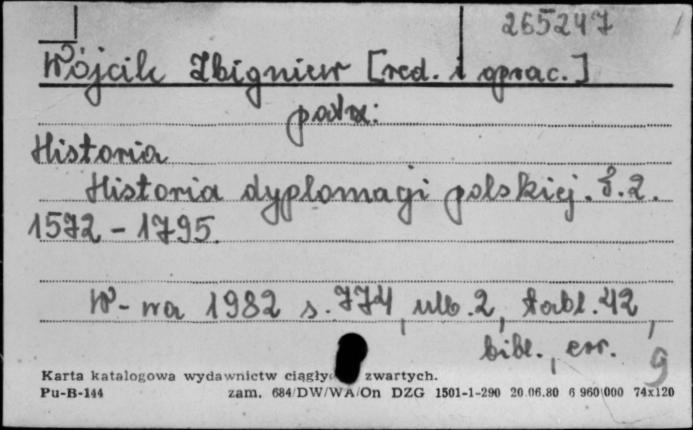 265247
Wójcik Zbigniew [red. i oprac.]
patrz:
Historia
Historia dyplomacji polskiej. T.2.
1572 - 1795.
W-wa 1982 s. 774, nlb. 2, tabl. 42,
bibl., err.
9
Karta katalogowa wydawnictw ciągły zwartych.
Pu-B-144 zam. 684/DW/WA/On DZG 1501-1-290 20.06.80 6 960 000 74x120